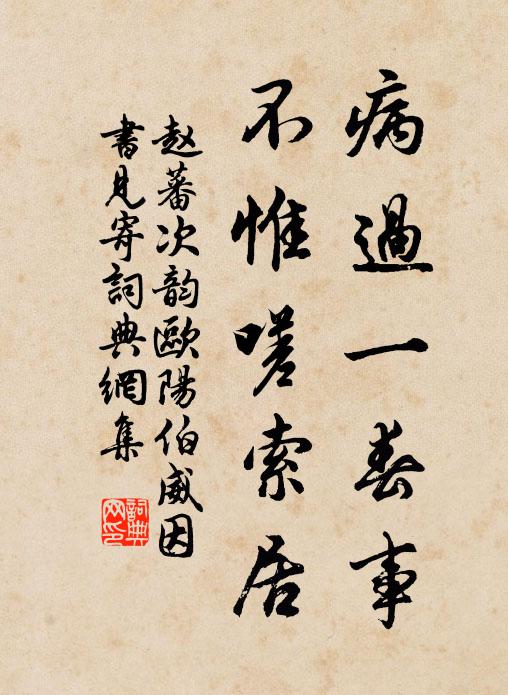 病過一春事
不惟嗟索居
赵蕃次韵歐陽伯威因
書見寄詞典網集
詞典
网印